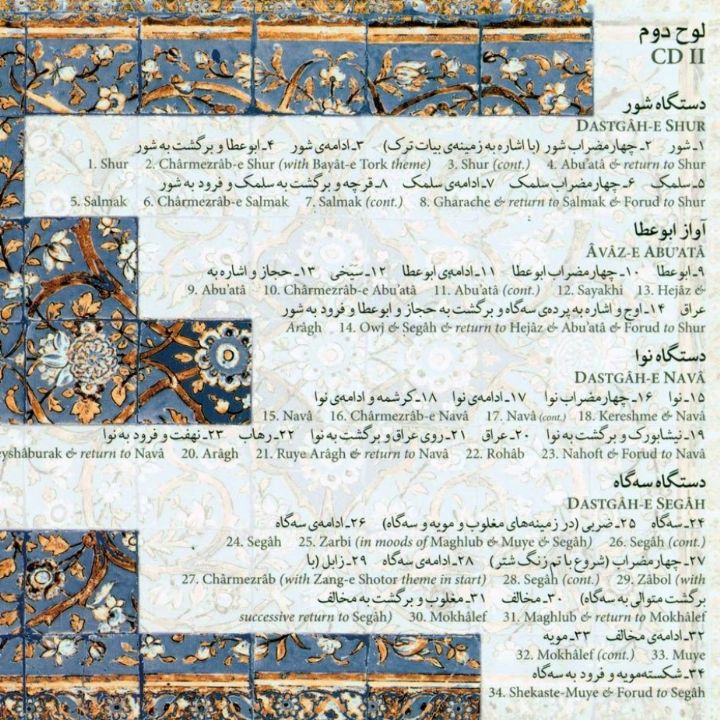 لوح دوم
CD II
دستگاه شور
DASTGÂH-E SHUR
۱ـ شور ۲ـ چهارمضراب شور (با اشاره به زمینه‌ی بیات ترک) ۳ـ ادامه‌ی شور ۴ـ ابوعطا و برگشت به شور
1. Shur 2. Chârmezrâb-e Shur (with Bayât-e Tork theme) 3. Shur (cont.) 4. Abu'atâ & return to Shur
۵ـ سلمک ۶ـ چهارمضراب سلمک ۷ـ ادامه‌ی سلمک ۸ـ قرچه و برگشت به سلمک و فرود به شور
5. Salmak 6. Chârmezrâb-e Salmak 7. Salmak (cont.) 8. Gharache & return to Salmak & Forud to Shur
آواز ابوعطا
ÂVÂZ-E ABU'ATÂ
۹ـ ابوعطا ۱۰ـ چهارمضراب ابوعطا ۱۱ـ ادامه‌ی ابوعطا ۱۲ـ سیَخی ۱۳ـ حجاز و اشاره به
9. Abu'atâ 10. Chârmezrâb-e Abu'atâ 11. Abu'atâ (cont.) 12. Sayakhi 13. Hejâz &
عراق ۱۴ـ اوج و اشاره به پرده‌ی سه‌گاه و برگشت به حجاز و ابوعطا و فرود به شور
Arâgh 14. Owj & Segâh & return to Hejâz & Abu'atâ & Forud to Shur
دستگاه نوا
DASTGÂH-E NAVÂ
۱۵ـ نوا ۱۶ـ چهارمضراب نوا ۱۷ـ ادامه‌ی نوا ۱۸ـ کرشمه و ادامه‌ی نوا
15. Navâ 16. Chârmezrâb-e Navâ 17. Navâ (cont.) 18. Kereshme & Navâ
۱۹ـ نیشابورک و برگشت به نوا ۲۰ـ عراق ۲۱ـ روی عراق و برگشت به نوا ۲۲ـ رهاب ۲۳ـ نهفت و فرود به نوا
eyshâburak & return to Navâ 20. Arâgh 21. Ruye Arâgh & return to Navâ 22. Rohâb 23. Nahoft & Forud to Navâ
دستگاه سه‌گاه
DASTGÂH-E SEGÂH
۲۴ـ سه‌گاه ۲۵ـ ضربی (در زمینه‌های مغلوب و مویه و سه‌گاه) ۲۶ـ ادامه‌ی سه‌گاه
24. Segâh 25. Zarbi (in moods of Maghlub & Muye & Segâh) 26. Segâh (cont.)
۲۷ـ چهارمضراب (شروع با تم زنگ شتر) ۲۸ـ ادامه‌ی سه‌گاه ۲۹ـ زابل (با
27. Chârmezrâb (with Zang-e Shotor theme in start) 28. Segâh (cont.) 29. Zâbol (with
برگشت متوالی به سه‌گاه) ۳۰ـ مخالف ۳۱ـ مغلوب و برگشت به مخالف
successive return to Segâh) 30. Mokhâlef 31. Maghlub & return to Mokhâlef
۳۲ـ ادامه‌ی مخالف ۳۳ـ مویه
32. Mokhâlef (cont.) 33. Muye
۳۴ـ شکسته‌مویه و فرود به سه‌گاه
34. Shekaste-Muye & Forud to Segâh